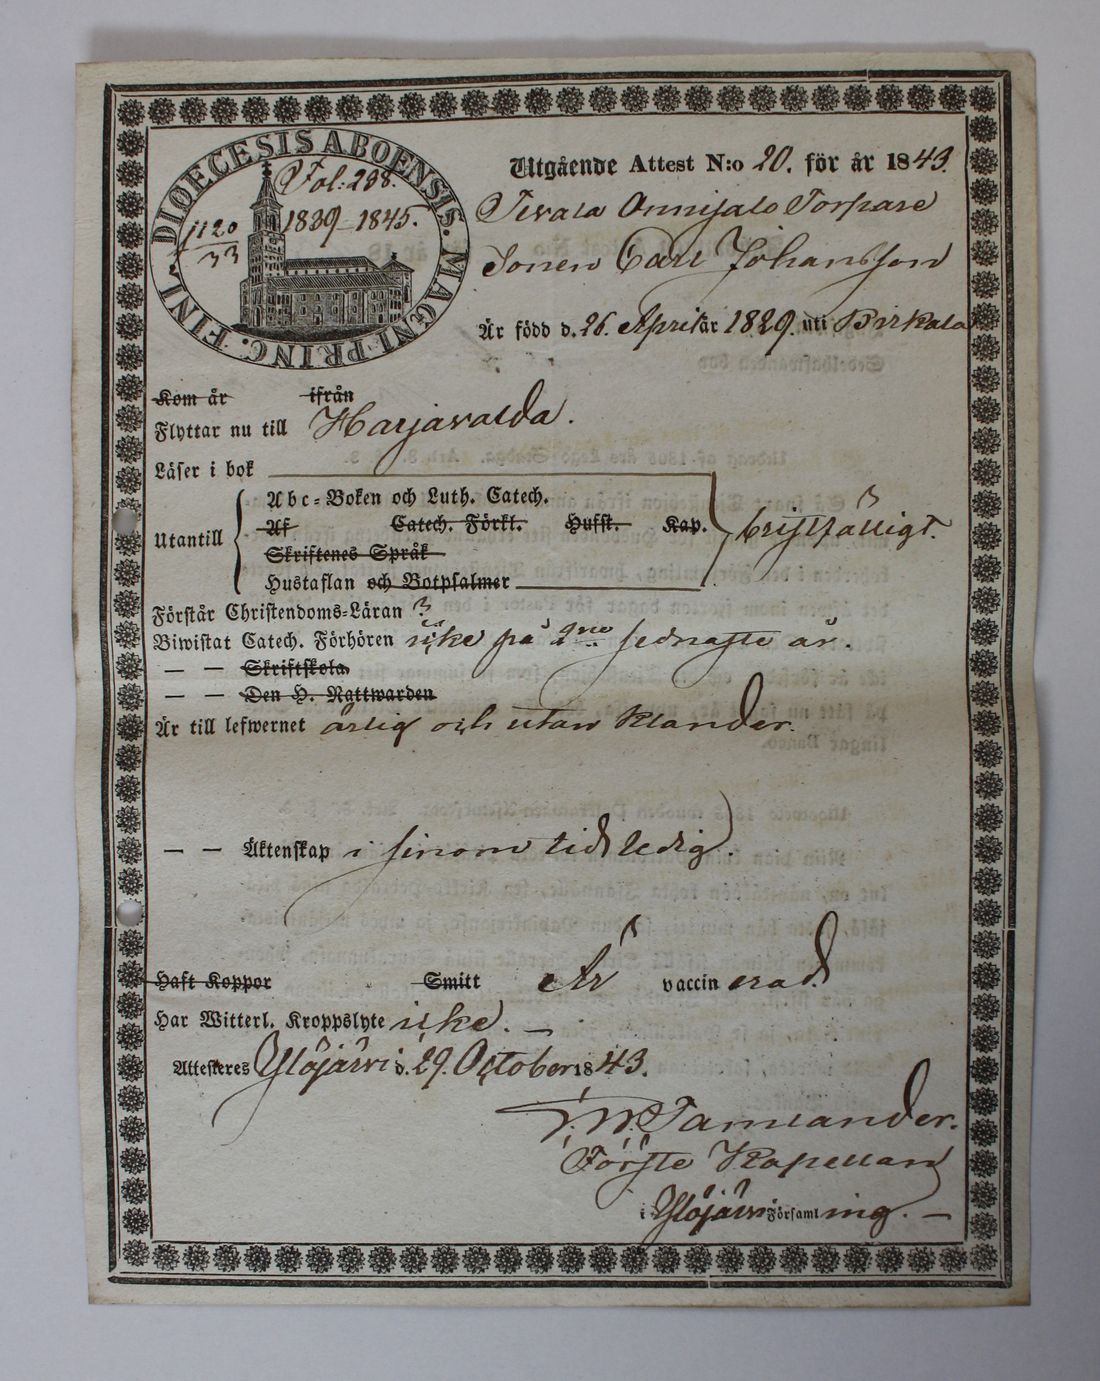 DIOECESIS ABOENSIS. MAGNI. PRINC. FINL.
Fol: 238.
1839–1845.
1120
33
Utgående Attest N:o 20. för år 1843.
Onnijalo Torpare
Sonen Carl Johansson
Är född d. 26. April år 1829. uti Birkala
Kom år ifrån
Flyttar nu till Harjavalda.
Läser i bok
Utantill
Abc-Boken och Luth. Catech.
Af Catech. Förkl. Husst. Kap.
Skriftenes Språk
Hustaflan och Botpsalmer
bristfälligt.
Förstår Christendoms-Läran
Biwistat Catech. Förhören icke på 2ne sednaste år.
— — Skriftskola
— — Den H. Nattwarden
Är till lefwernet ärlig och utan klander.
— — Äktenskap i sinom tid ledig
Haft Koppor Smitt Är vaccinerad.
Har Witterl. Kroppslyte icke. —
Attesteres Ylöjärvi d. 29. October 1843.
Tamlander.
Förste Kapellan
i Ylöjärvi Församling. —